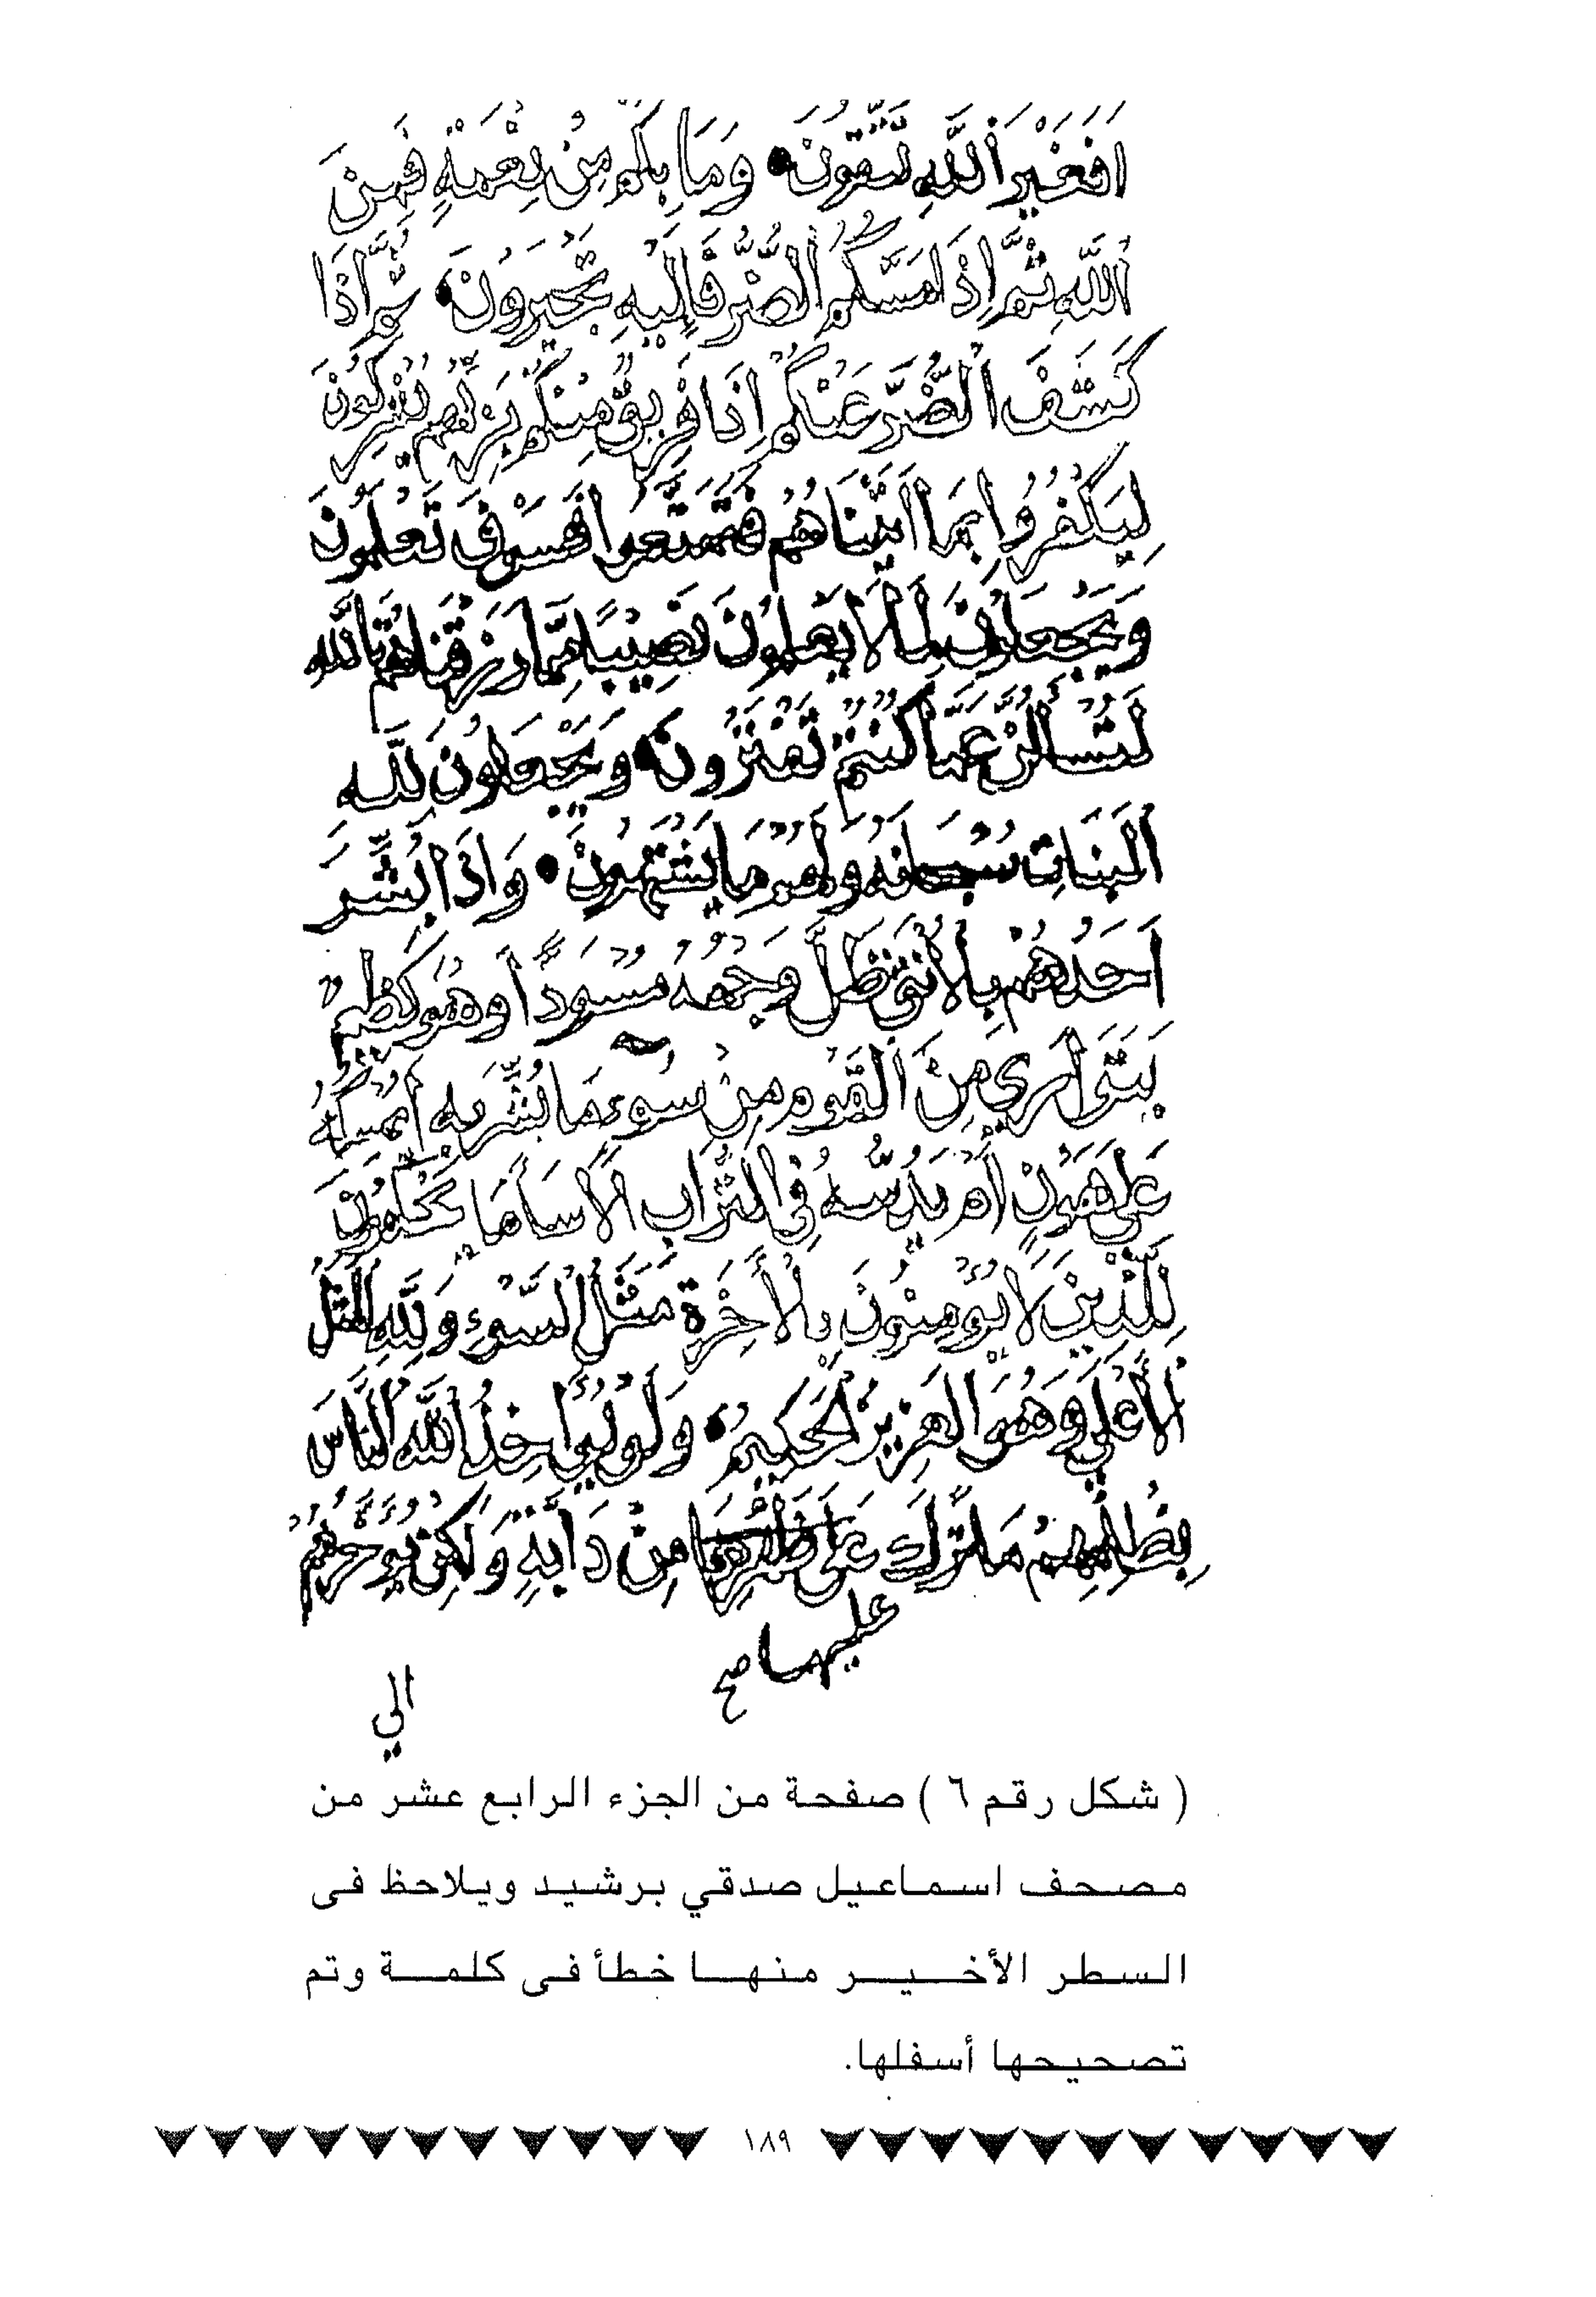 اَفَغَيْرَ اَللَّهِ تَتَّقُونَ وَمَا بِكُمْ مِنْ نِعْمَةٍ فَمِنَ
اَللَّهِ ثُمَّ اِذَا مَسَّكُمُ الضُّرُّ فَاِلَيْهِ تَجْـَٔرُونَ ثُمَّ اِذَا
كَشَفَ الضُّرَّ عَنْكُمْ اِذَا فَرِيقٌ مِنْكُمْ بِرَبِّهِمْ يُشْرِكُونَ
لِيَكْفُرُوا بِمَا اَتَيْنَاهُمْ فَتَمَتَّعُوا فَسَوْفَ تَعْلَمُونَ
وَيَجْعَلُونَ لِمَا لَا يَعْلَمُونَ نَصِيبًا مِمَّا رَزَقْنَاهُمْ تَاللَّهِ
لَتُسْأَلُنَّ عَمَّا كُنْتُمْ تَفْتَرُونَ وَيَجْعَلُونَ لِلَّهِ
اَلْبَنَاتِ سُبْحَانَهُ وَلَهُمْ مَا يَشْتَهُونَ وَاِذَا بُشِّرَ
اَحَدُهُمْ بِالْأُنْثَى ظَلَّ وَجْهُهُ مُسْوَدًّا وَهُوَ كَظِيمٌ
يَتَوَارَي مِنَ الْقَوْمِ مِنْ سُوءِ مَا بُشِّرَ بِهِ أَيُمْسِكُهُ
عَلَى هُونٍ أَمْ يَدُسُّهُ فِي التُّرَابِ أَلَا سَاءَ مَا يَحْكُمُونَ
لِلَّذِينَ لَا يُؤْمِنُونَ بِالْأَخِرَةِ مَثَلُ السَّوْءِ وَلِلَّهِ الْمَثَلُ
الْأَعْلَي وَهُوَ الْعَزِيزُ الْحَكِيمُ وَلَوْ يُؤَاخِذُ اللَّهُ النَّاسَ
بِظُلْمِهِمْ مَا تَرَكَ عَلَى ظَهْرِهَا مِنْ دَابَّةٍ وَلَكِنْ يُؤَخِّرُهُمْ
عليها صح
الي
( شكل رقم ٦ ) صفحة من الجزء الرابع عشر من
مصحف اسماعيل صدقي برشيد ويلاحظ فى
السطر الأخير منها خطأ فى كلمة وتم
تصحيحها أسفلها.
١٨٩